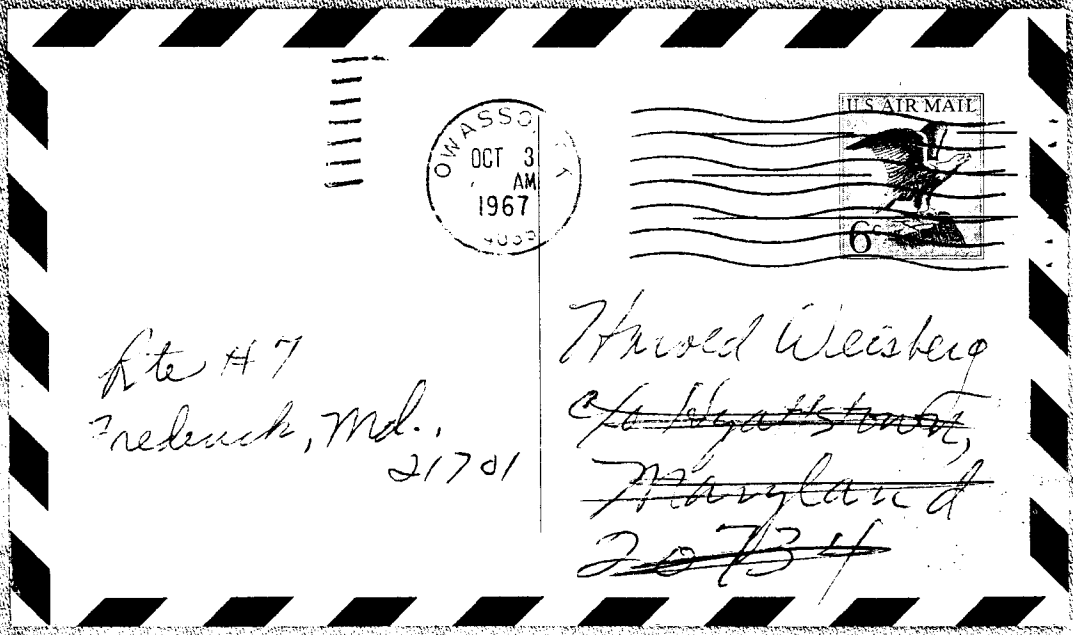 OWASSO
OCT 3
AM
1967
U S AIR MAIL
6c
Rte # 7
Frederick, Md.,
21701
Harold Weisberg
c/o Hyattstown,
Maryland
20734